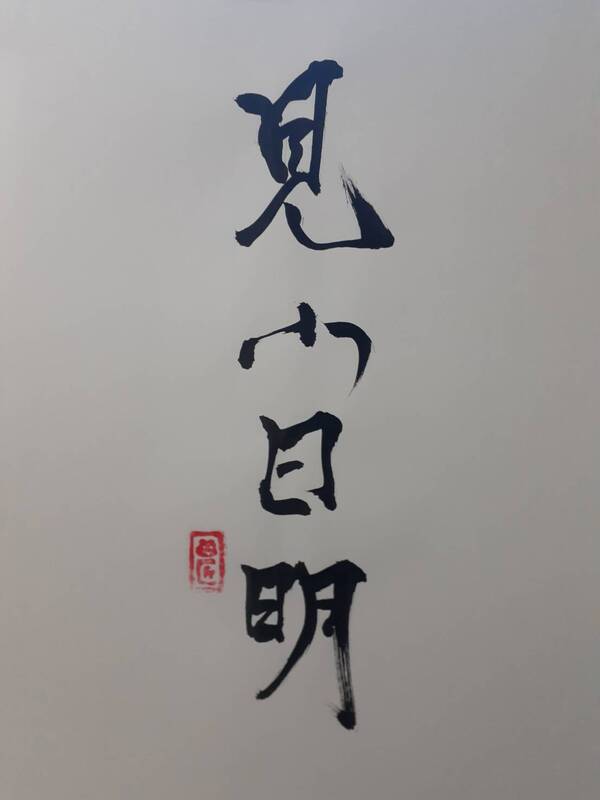 見小曰明